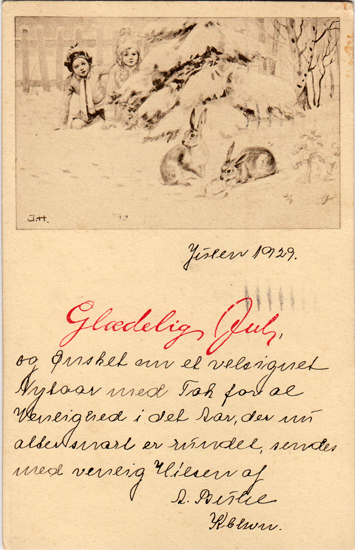 J.H.
Julen 1929.
Glædelig Jul,
og Ønsket om et velsignet
Nytaar med Tak for al
Venlighed i det Aar, der nu
altsnart er rundet, sendes
med venlig Hilsen af
A.
Kbhvn.